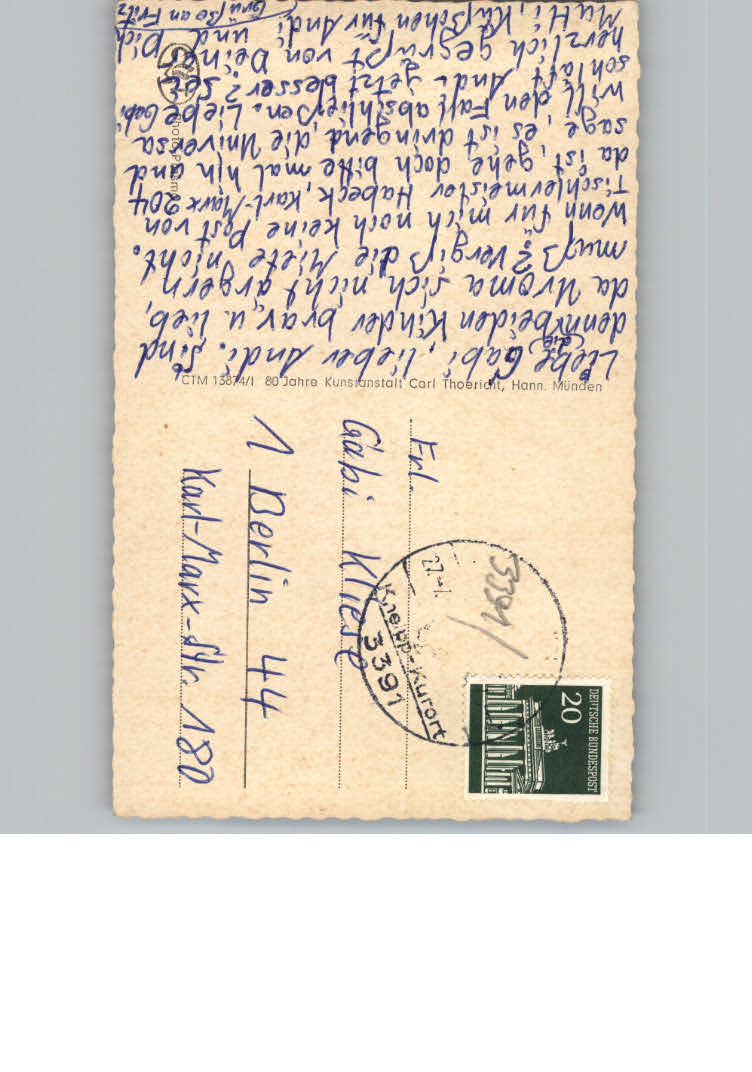 Liebe Gabi, lieber Andi. Sind
denn die beiden Kinder brav u. lieb,
da Uroma sich nicht ärgern
muß? Vergiß die Miete nicht.
Wenn für mich noch keine Post von
Tischlermeister Habeck, Karl-Marx 204
da ist, gehe doch bitte mal hin und
sage, es ist dringend, die Universa
will den Fall abschließen. Liebe Gabi,
schläft Andi jetzt besser? Sei
herzlich gegrüßt von Deiner
Mutti, Küßchen für Andi und Dich
Grüße an Fritz
CTM 13874/I 80 Jahre Kunstanstalt Carl Thoericht, Hann. Münden
Frl.
Gabi Kliese
1 Berlin 44
Karl-Marx-Str. 180
DEUTSCHE BUNDESPOST
20
3391
Kneipp-Kurort
3391